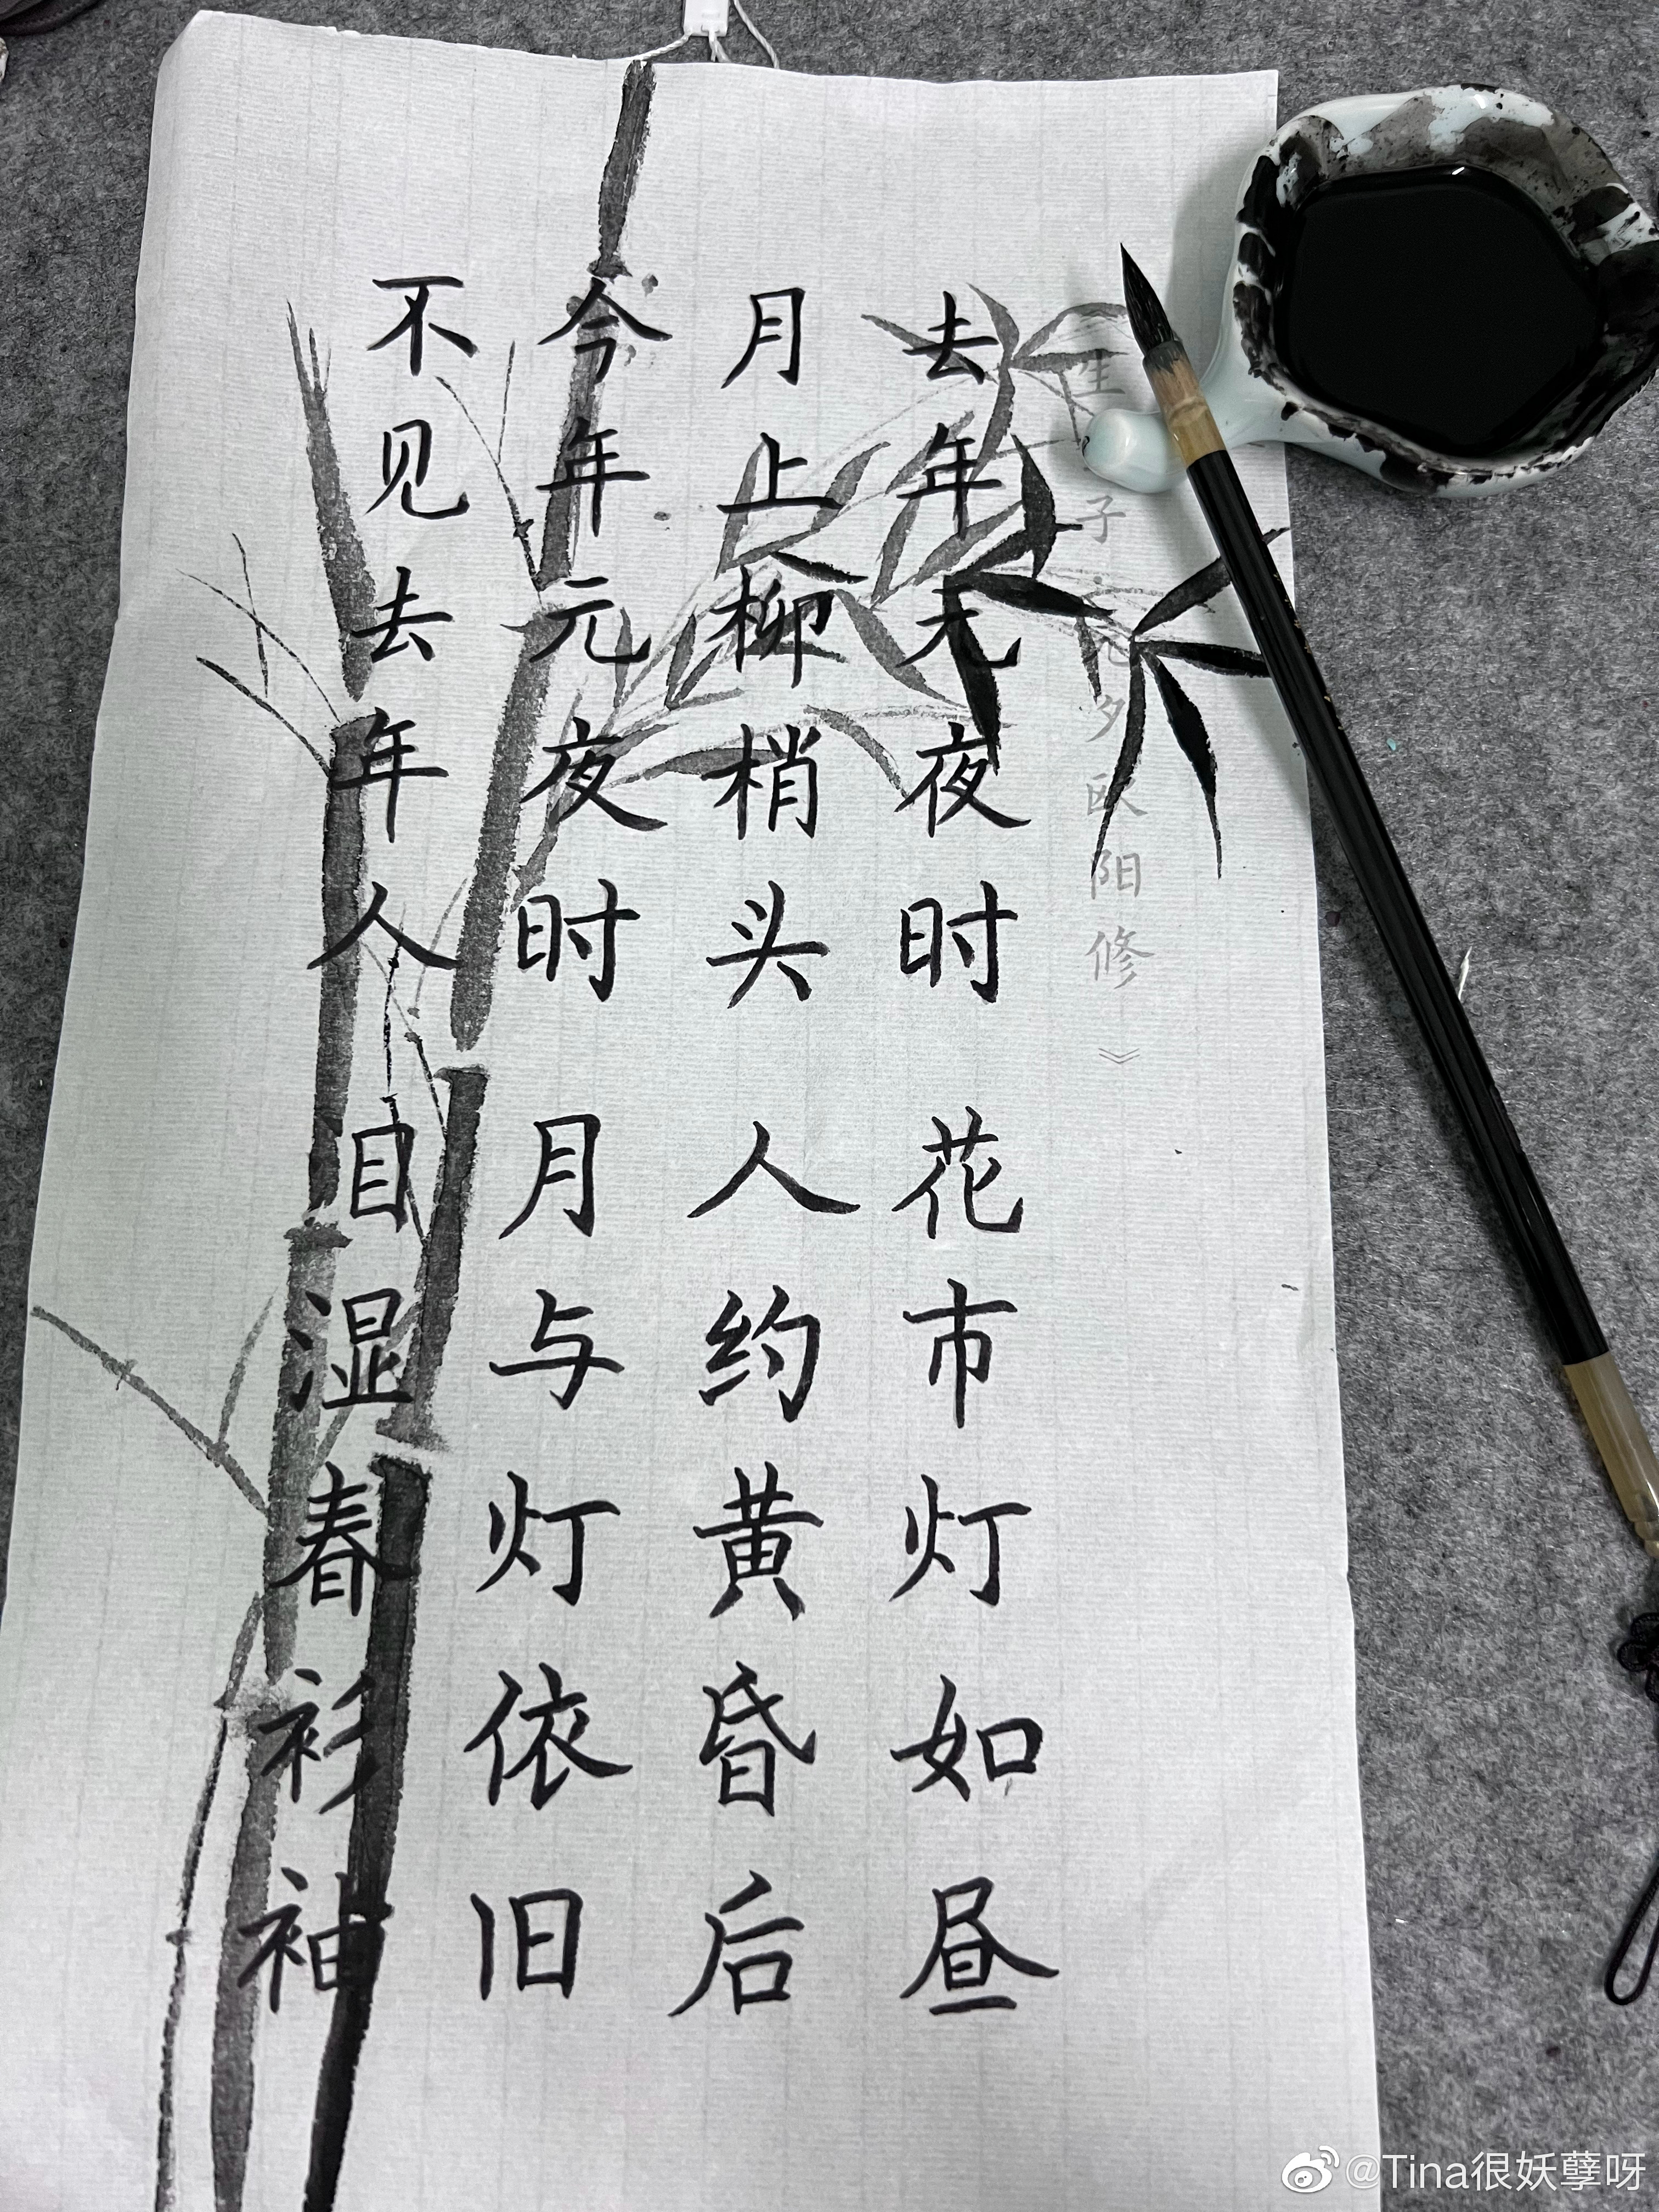 生 子·元夕 欧阳修》
去年元夜时 花市灯如昼
月上柳梢头 人约黄昏后
今年元夜时 月与灯依旧
不见去年人 自湿春衫袖
@Tina很妖孽呀